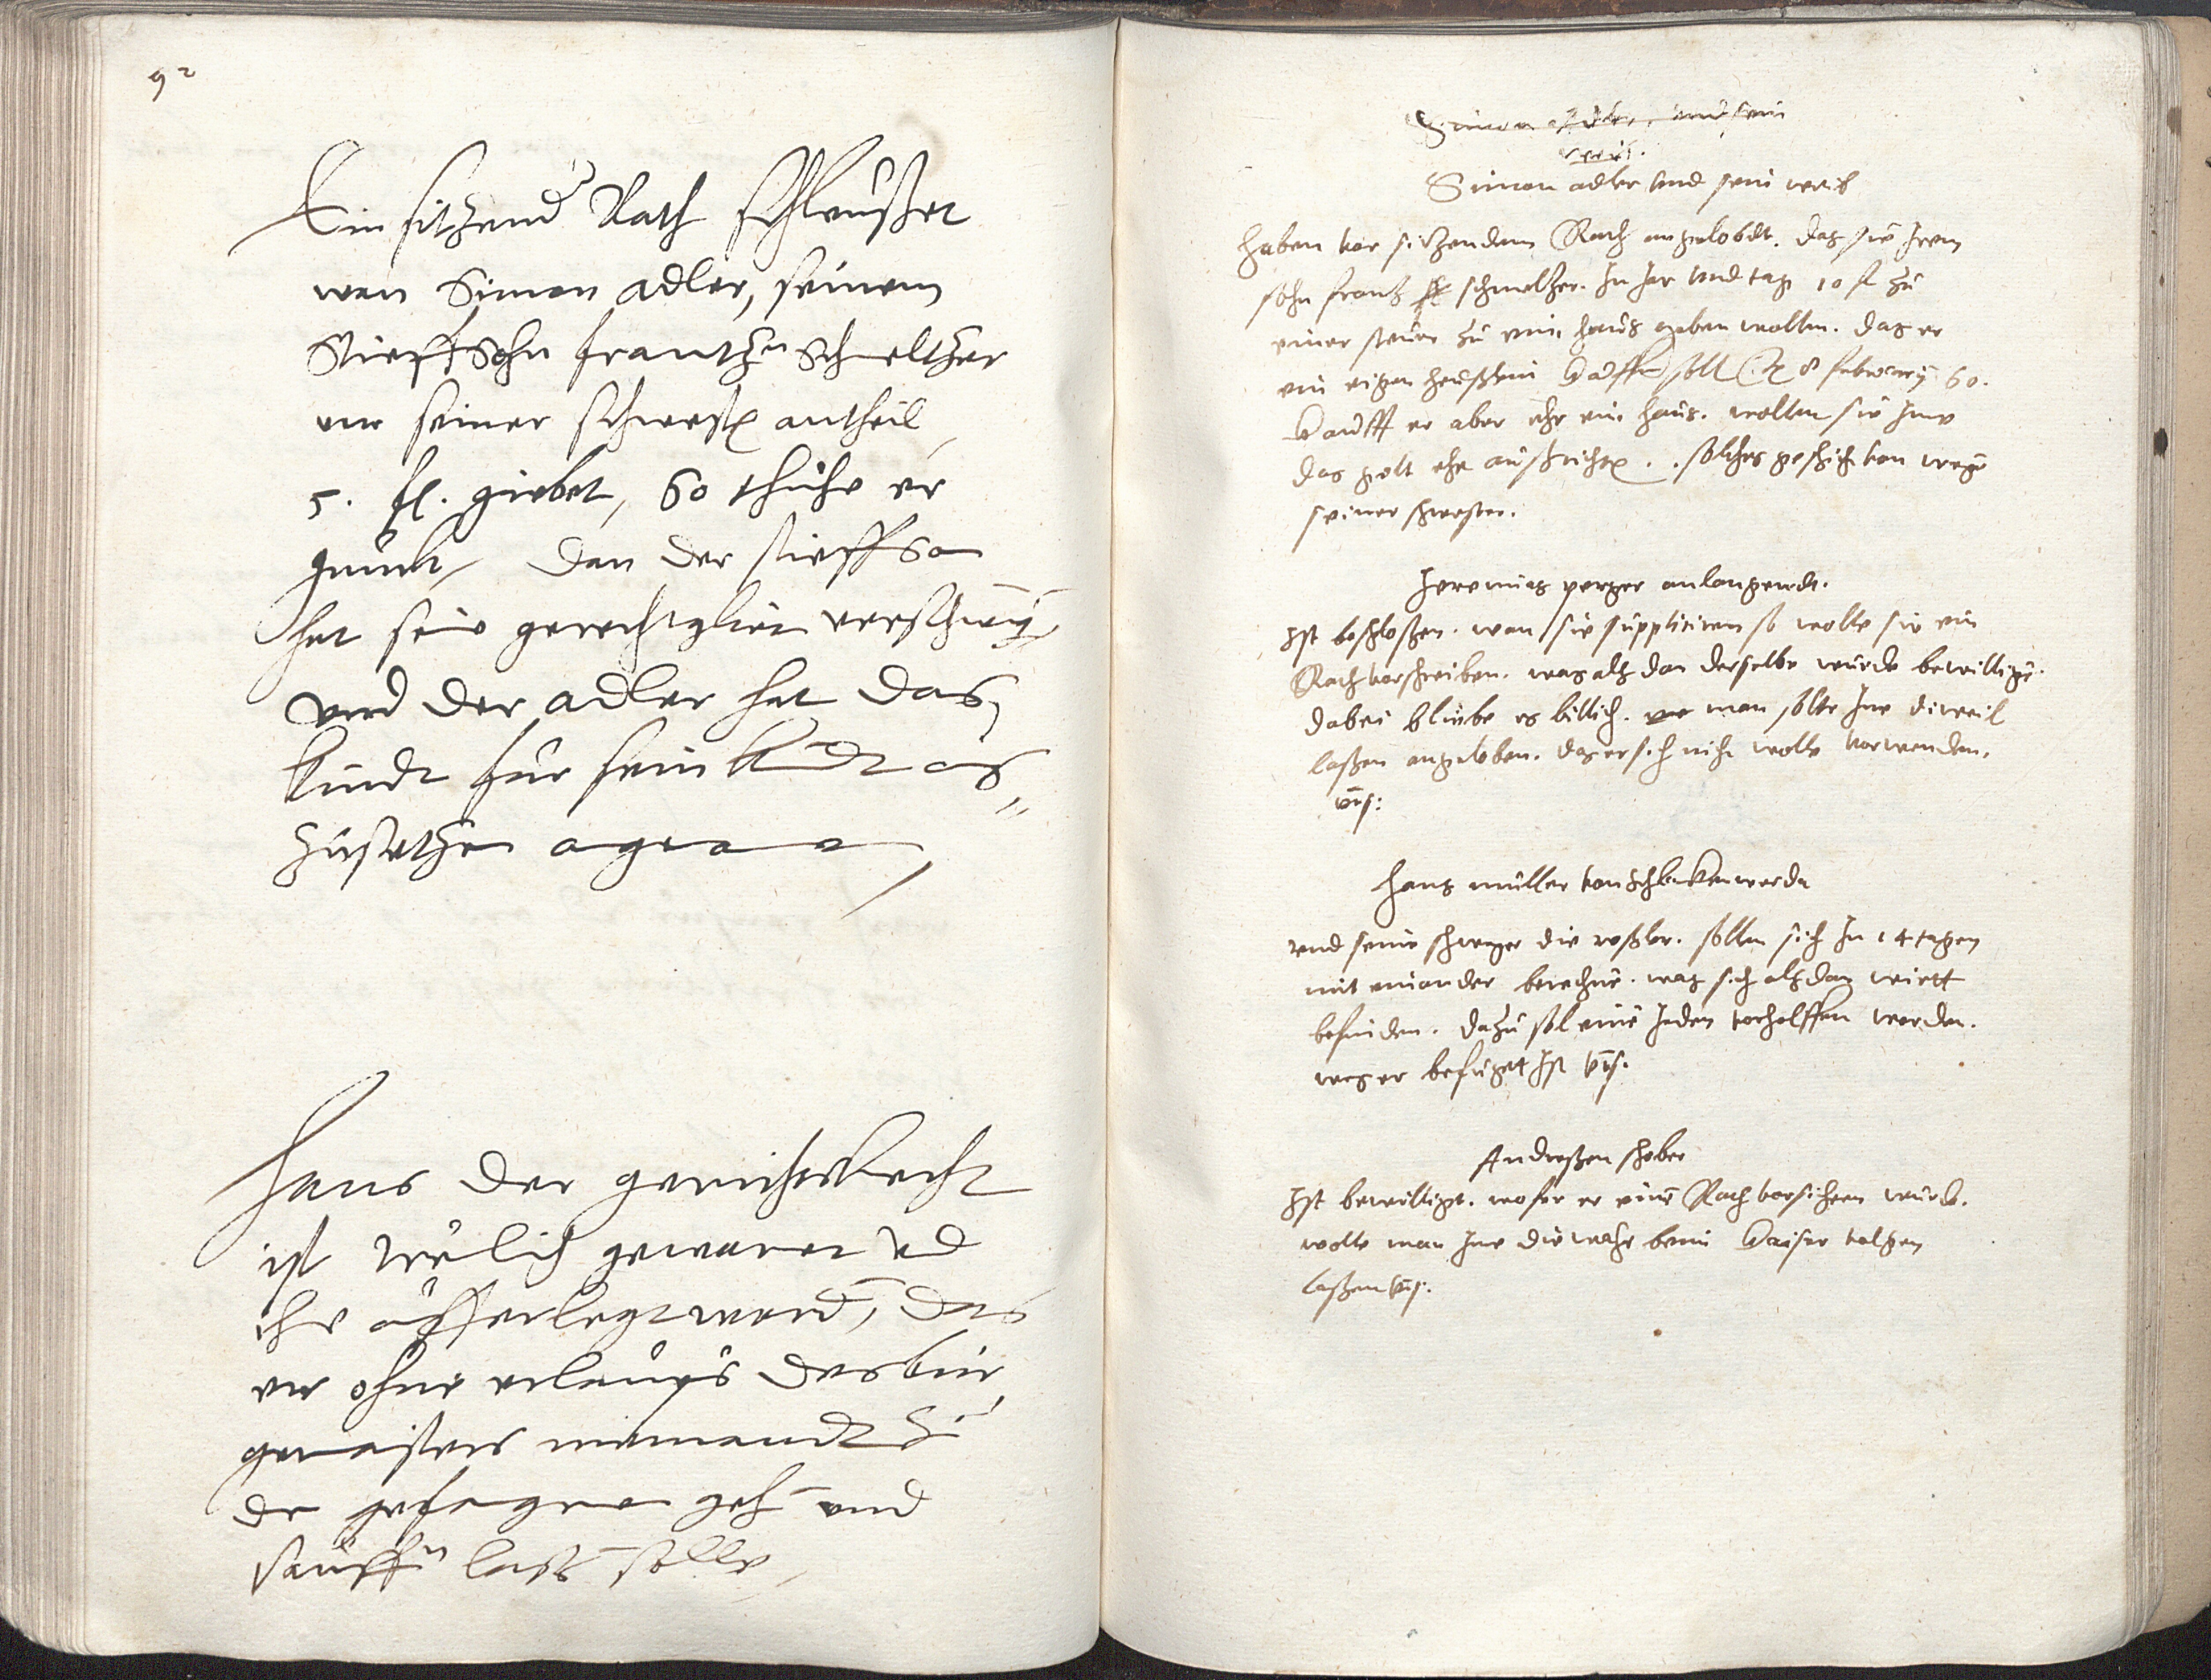 92
Ein sitzend Rath schleusset
wan Simon adler, seinem
Stieffsohn frantzn Schmeltzer
vor seiner schwester antheil
5. fl. giebet, so thuhe er
gnunk, dan der stieffson
hat sein gerechtikeit verschwigen
vnd der adler hat das
kindt fur sein kindt aus
zusetzen
Hans der gerichtsknecht
ist gewarnet vnd
ihm aufferlegt worden, das
er ohne erlaubnus des bur
germaisters niemandt zu
den gefangnen gehn vnd
sauffn lassn solle
Simon adler, vnd sein
weib.
Simon adler vnd sein weib
haben vor sitzendem Rath angelobdt. das sie Irem
sohn frantz schmeltzer. In Jar vnd tag 10 fl zu
einer steuer zu eim haus geben wollen. das er
ein eigen heuslein kauffen soll 8 february 60.
kaufft er aber ehr ein haus. wollen sie Ime
das gelt ehr ausrichten. solches geschicht von wegen
seiner schwester.
Jeremias perger anlangendt.
Ist beschlossen. wan sie suppliciren so wolle sie ein
Rath vorschreiben. was als dan derselbe wurde bewilligen.
dabei bliebe es billich. man solte Ime diweil
lassen angeloben. das er sich nicht wolle vorwenden.
Hans muller von Schlackenwerda
vnd seine schweger die sollen sich In 14 tagen
mit einander berechnen. was sich alsdan wirtt
befinden. dazu sol einem Jeden vorholffen werden.
wes er befuget Ist
Andressen schober
Ist bewilligt. wofer er einen Rath vorsichern wurde.
wolle man Ime die beim kaiser volgen
lassen